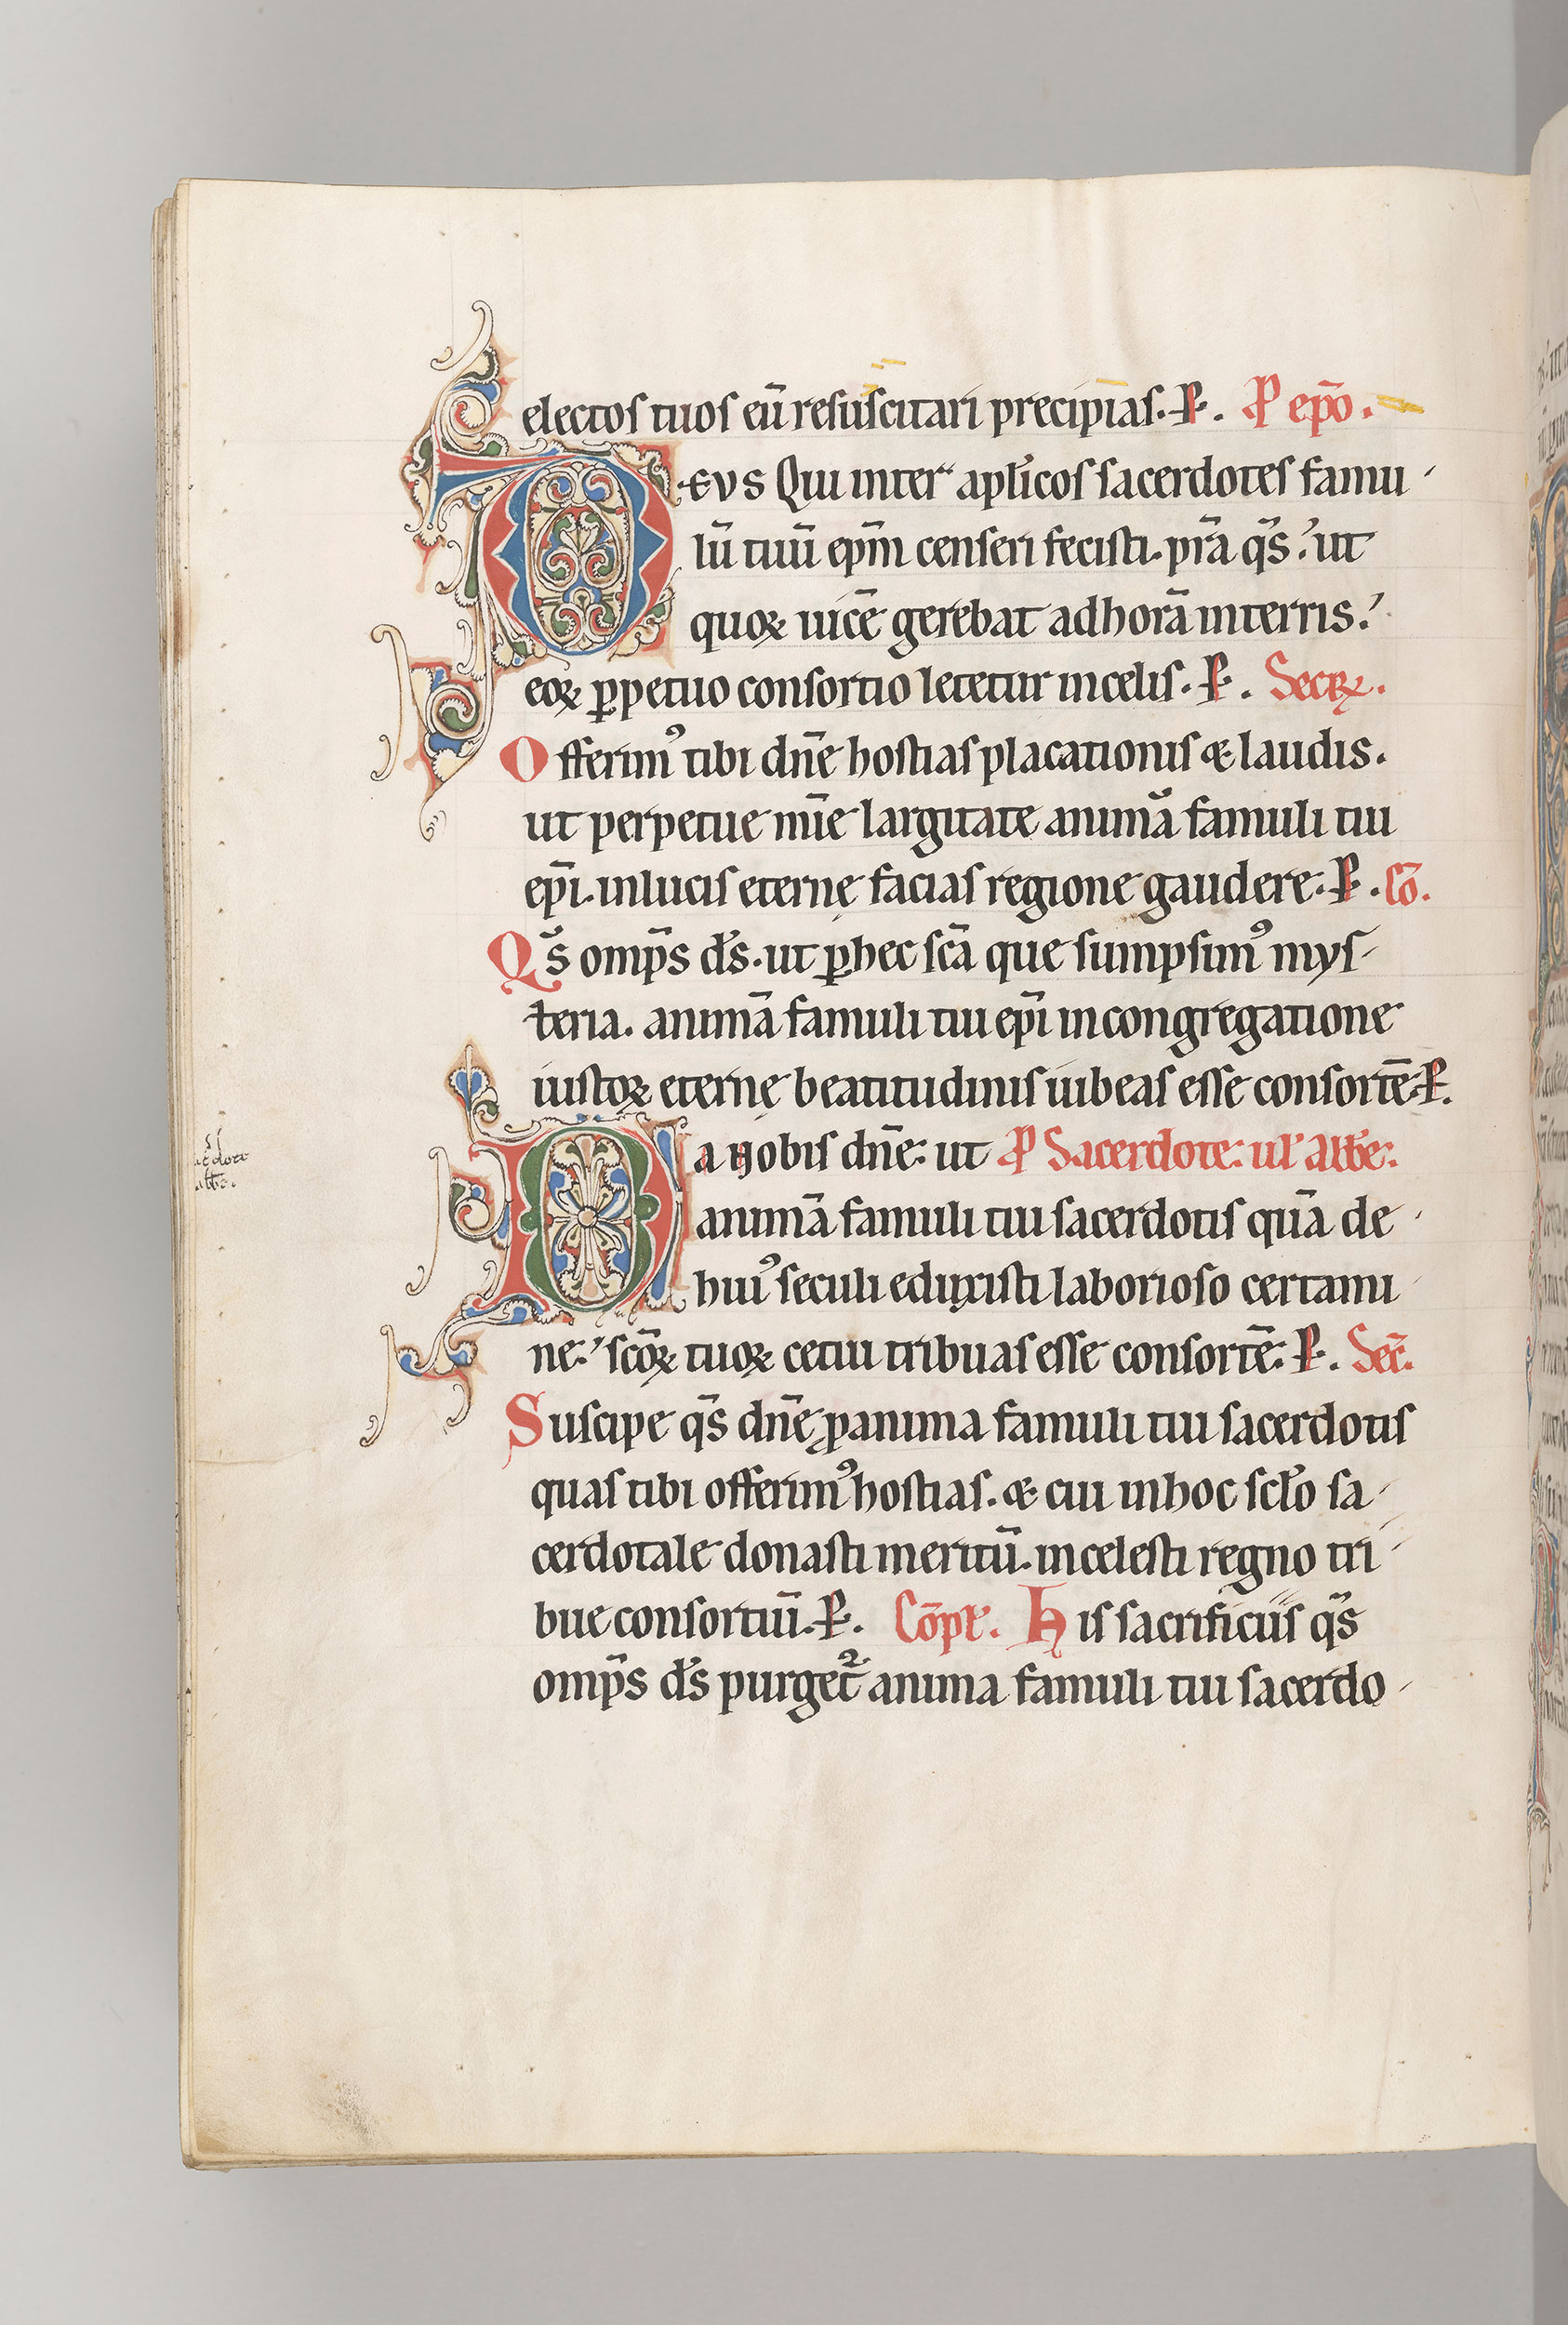 electos tuos eū resuscitari precipias. P. P epō.
DEVS Qui inter aplicos sacerdotes famu
lū tuū epm̄ censeri fecisti. prā qs̄, ut
quoꝝ uicē gerebat ad horā in terris,
eoꝝ ꝑpetuo consortio letetur in celis. P. Secꝝ.
Offerimꝰ tibi dnē hostias placationis & laudis.
ut perpetue mīe largitate animā famuli tui
epī. in lucis eternę facias regione gaudere. P. Cō.
Qs̄ omps̄ ds̄. ut ꝑ hec scā que sumpsimꝰ mys
teria. animā famuli tui epī in congregatione
iustoꝝ eternę beatitudinis iubeas esse consortē. P.
Da nobis dnē: ut P Sacerdote: ul' abb̄e:
animā famuli tui sacerdotis quā de
huiꝰ seculi eduxisti laborioso certami
ne, scōꝝ tuoꝝ cetui tribuas esse consortē: P. Sec̄.
Suscipe qs̄ dnē ꝓ anima famuli tui sacerdotis
quas tibi offerimꝰ hostias. & cui in hoc scło sa
cerdotale donasti meritū. in celesti regno tri
bue consortiū. P. Cōpł. His sacrificiis qs̄
omps̄ ds̄ purget᷑ anima famuli tui sacerdo